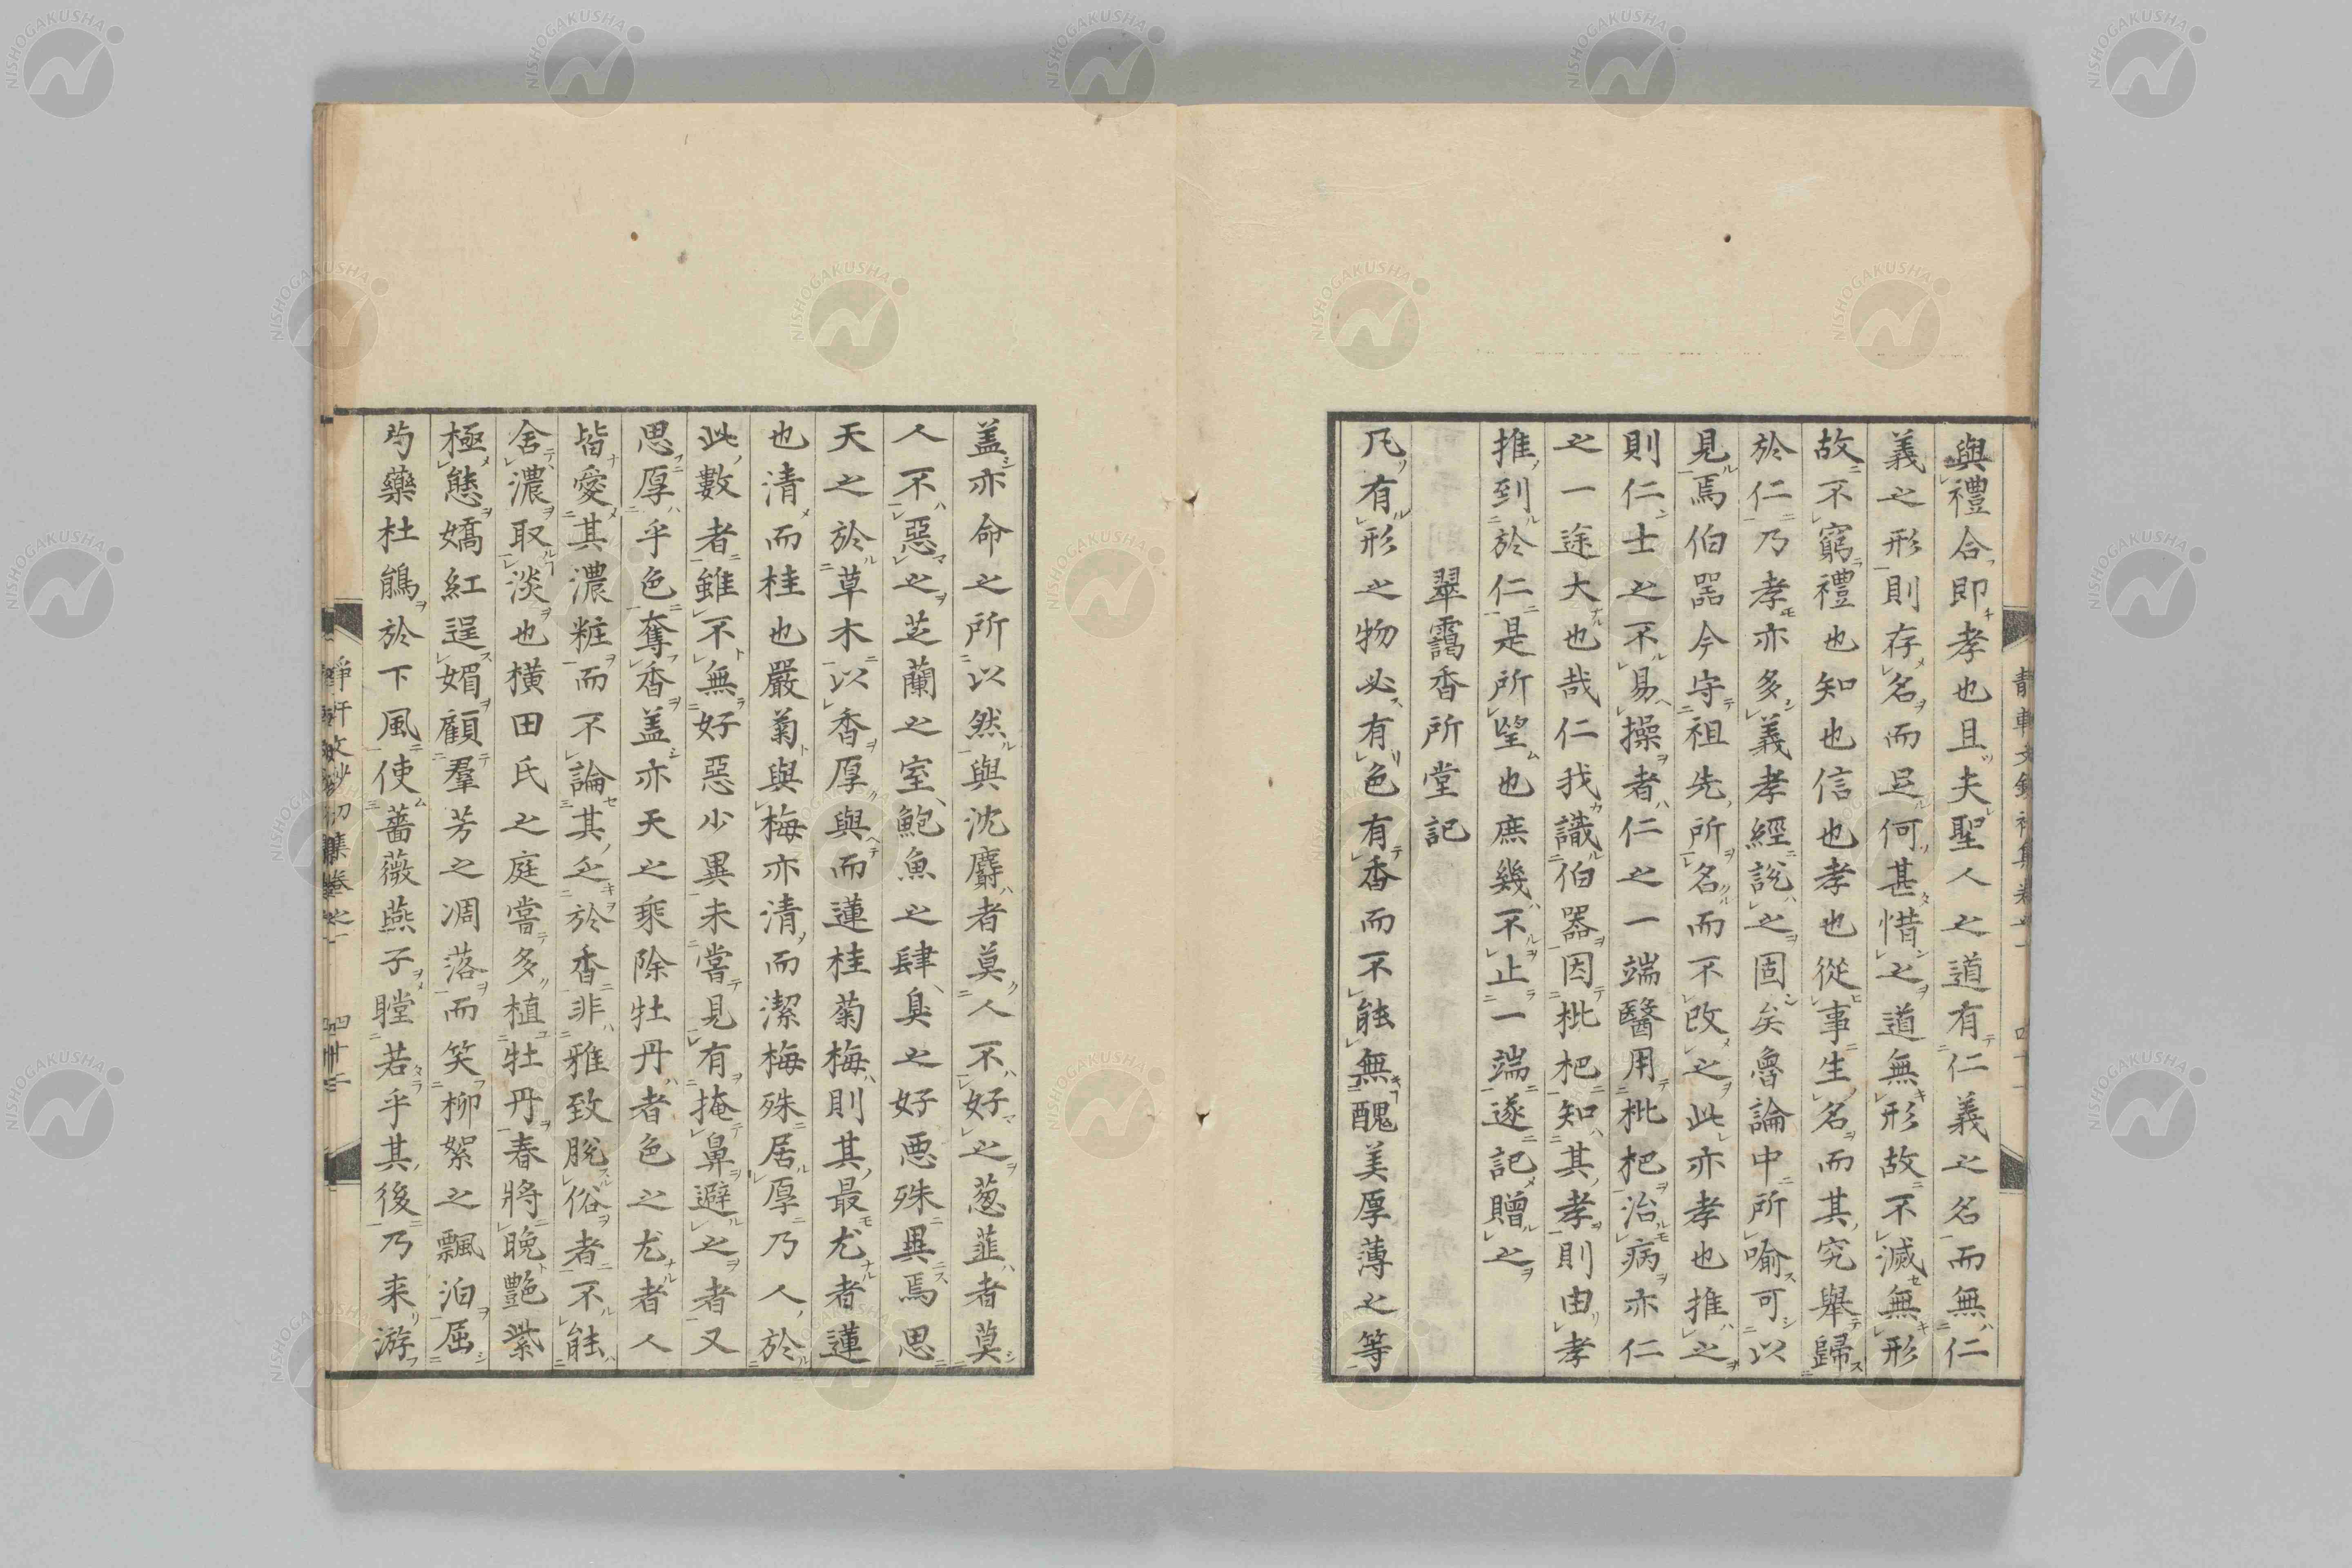 與禮合即孝也且夫聖人之道有仁義之名而無仁
義之形則存名而足何甚惜之道無形故不滅無形
故不窮禮也知也信也孝也從事生名而其究舉歸
於仁乃孝亦多義孝經説之固矣魯論中所喻可以
見焉伯器今守祖先所名而不改之此亦孝也推之
則仁士之不易操者仁之一端醫用枇杷治病亦仁
之一途大也哉仁我識伯器因枇杷知其孝則由孝
推到於仁是所望也庶幾不止一端遂記贈之
翠靄香所堂記
凡有形之物必有色有香而不能無醜美厚薄之等
蓋亦命之所以然與沈麝者莫人不好之葱韮者莫
人不惡之芝蘭之室鮑魚之肆臭之好悪殊異焉思
天之於草木以香厚與而蓮桂菊梅則其最尤者蓮
也清而桂也嚴菊與梅亦清而潔梅殊居厚乃人於
此數者雖不無好惡少異未嘗見有掩鼻避之者又
思厚乎色奪香蓋亦天之乘除牡丹者色之尤者人
皆愛其濃粧而不論其乏於香非雅致脱俗者不能
舍濃取淡也横田氏之庭嘗多植牡丹春將晩艷紫
極態嬌紅逞媚顧羣芳之凋落而笑柳絮之飄泊屈
芍藥杜鵑於下風使薔薇燕子瞠若乎其後乃来游
靜軒文鈔初集卷之一 四十二
NISHOGAKUSHA